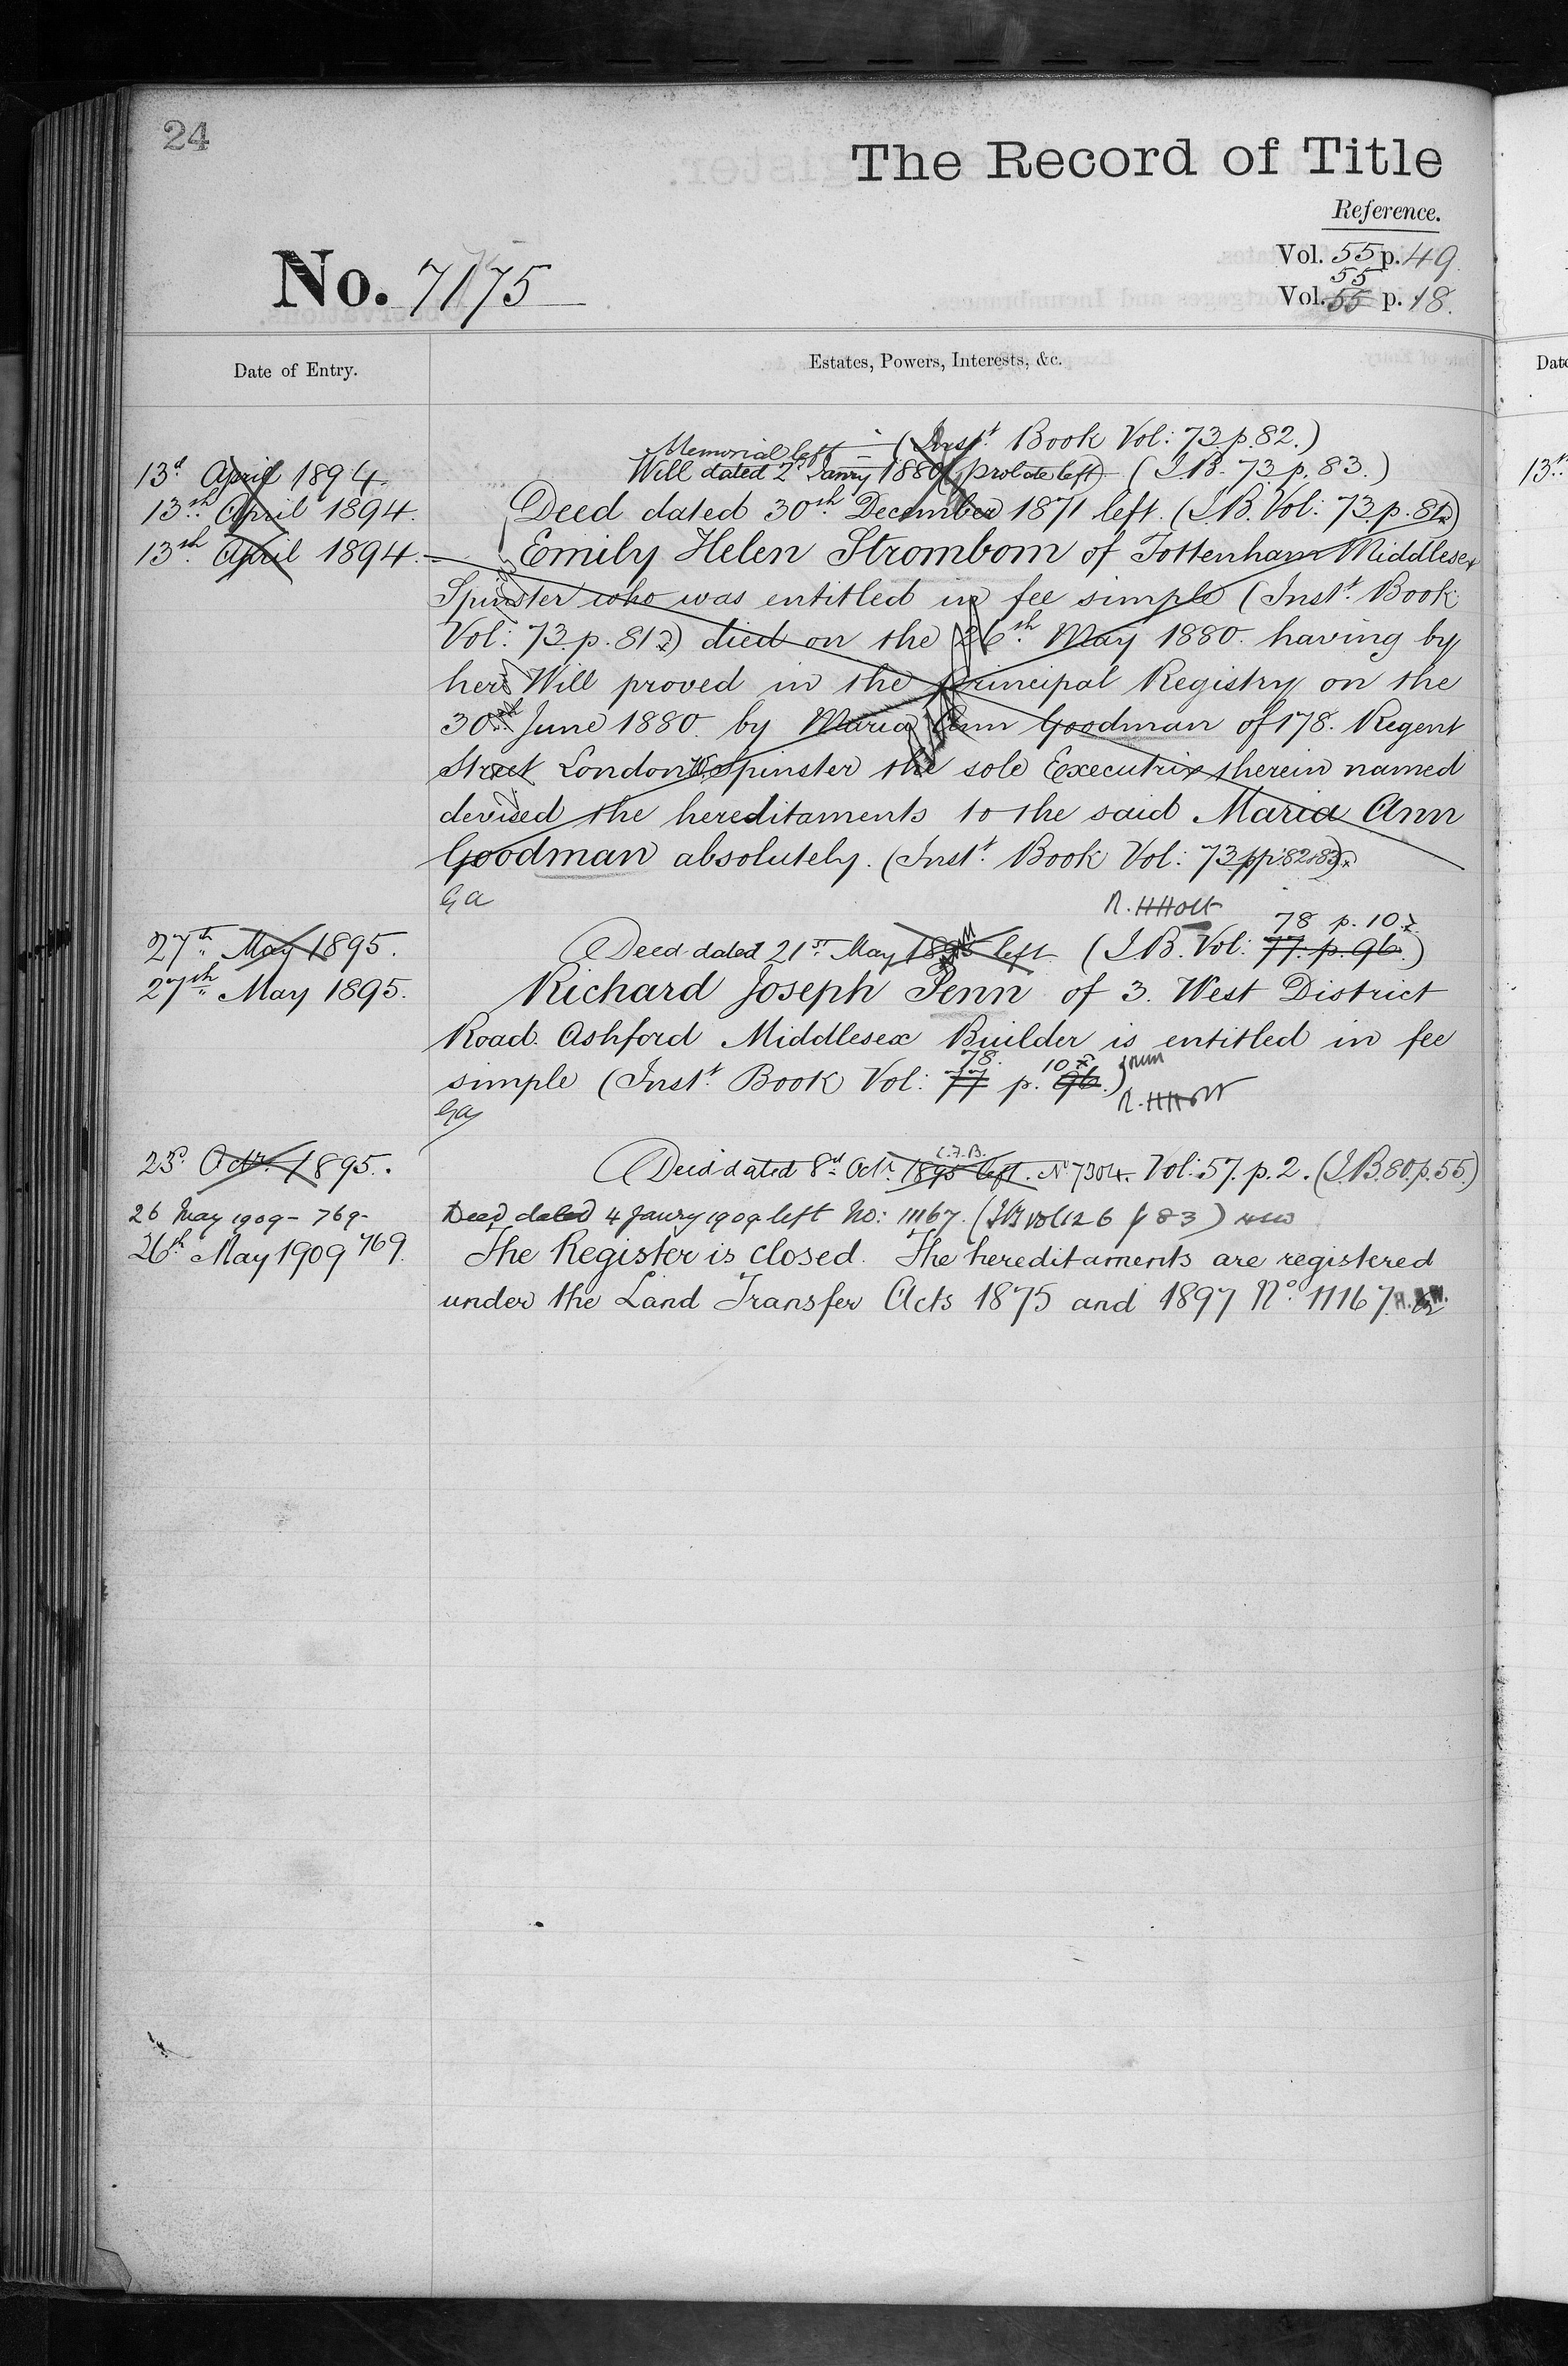 24
The Record of Title
Reference.
Vol. 55 p. 49.
55
No. 7175
Vol. 55 p. 18.
Date of Entry.
Estates, Powers, Interests, &c.
Memorial left (Inst.t Book Vol: 73. p. 82.)
13.d April 1894. Will dated 2.d Janry 1880 (probate left) (I.B. 73 p. 83.)
13.th April 1894. Deed dated 30th December 1871 left. (I.B. Vol: 73. p. 81.)
13.th April 1894. Emily Helen Strombom of Tottenham Middlesex
Spinster who was entitled in fee simple (Inst.t Book
Vol: 73. p. 81) died on the 26.th May 1880. having by
her Will proved in the Principal Registry on the
30 June 1880. by Maria Ann Goodman of 178. Regent
Street London W. Spinster the sole Executrix therein named
devised the hereditaments to the said Maria Ann
Goodman absolutely. (Inst.t Book Vol: 73 pp: 82 & 83)
GA R. H Holt
78 p. 10
27.th May 1895. Deed dated 21st May 1895 left (I.B. Vol: 77. p. 96.)
27.th May 1895. Richard Joseph Penn of 3. West District
Road. Ashford Middlesex Builder is entitled in fee
78. 10
simple (Inst.t Book Vol: 77 p. 96.)
GA R. H Holt
C.F.B.
23.d Octr. 1895. Deed dated 8.d Octr. 1895 left. No 7304. Vol: 57. p. 2. (I.B. 80. p. 55.)
26 May 1909 - 769 - Deed dated 4 Janry 1909 left No: 11167. (IB vol 126 p 83)
26th May 1909 769. The Register is closed. The hereditaments are registered
under the Land Transfer Acts 1875 and 1897 No. 11167.
Date
13.th